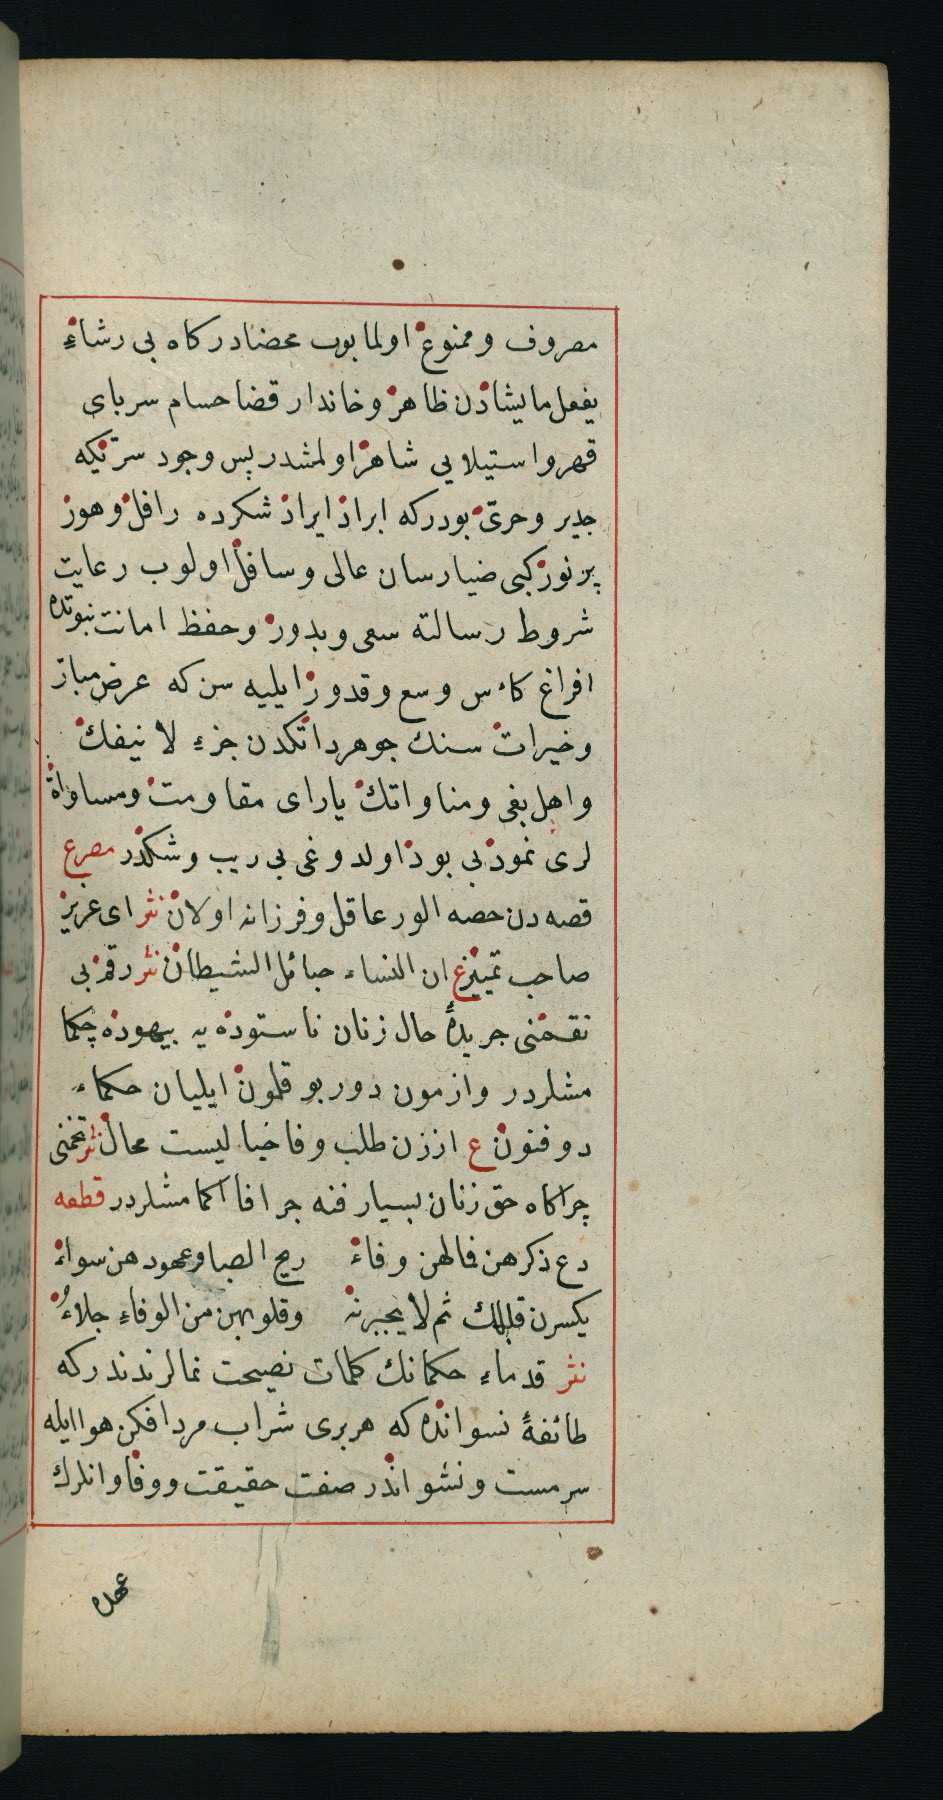 مصروف وممنوع اولمايوب محضا دركاه بى رشاءِ
يفعل مايشادن ظاهر وخاندار قضا حسام سرباى
قهر واستيلايى شاهر اولمشدر پس وجود سرتيكه
جدير وحرىّ بودركه ابراذ ايراد شكرده رافل وهوز
پرنور كبى ضيارسان عالى وسافل اولوب رعايت
شروط رسالته سعى وبدور وحفظ امانت نبوتده
افراغ كاءس وسع وقدور ايليه سن كه عرض مباز
وخيرات سنك جوهر داتكدن جزء لا نيفك
واهل بغى ومناواتك ياراى مقاومت ومساواة
لرى نمود بى بود اولدوغى بى ريب وشكدر مصرع
قصه دن حصه الور عاقل وفرزانه اولان نثر اى عزيز
صاحب تمييز ع ان النساء حبائل الشيطان نثر رقم بى
نقمنى جريدهٔ حال زنان ناستوده يه بيهوده چكما
مشلردر وازمون دور بوقلمون ايليان حكماءِ
دوفنون ع اززن طلب وفا خيا ليست محال نثر تخمنى
چراكاه حق زنان بسيار فنه جرافا اكما مشلردر قطعه
دع ذكرهن فالهن وفاء ريح الصبا وعهودهن سواء
يكسرن قلبلك ثم لا يجبرنه وقلوبهن من الوفاءِ جلاءُ
نثر قدماء حكمانك كلمات نصيحت نمالرندندركه
طائفهٔ نسوانده كه هربرى شراب مردافكن هوا ايله
سرمست ونشواندر صفت حقيقت ووفا وانلرك
عهده